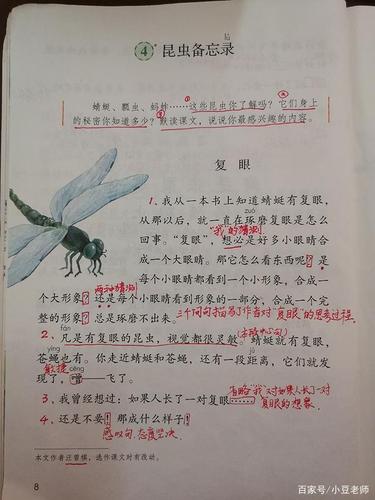 4* 昆虫备忘录
蜻蜓、瓢虫、蚂蚱……这些昆虫你了解吗?它们身上
的秘密你知道多少?默读课文,说说你最感兴趣的内容。
复眼
1、我从一本书上知道蜻蜓有复眼,
zuó
从那以后,就一直在琢磨复眼是怎么
"我"的猜测
回事。“复眼”,想必是好多小眼睛合
成一个大眼睛。那它怎么看东西呢?是
两种猜测
每个小眼睛都看到一个小形象,合成一
个大形象?还是每个小眼睛看到形象的一部分,合成一个完
整的形象?总是琢磨不出来。三个问句描写了作者对"复眼"的思考过程
fán
2、凡是有复眼的昆虫,视觉都很灵敏。(本段中心句)蜻蜓就有复眼,
yíng
苍蝇也有。你走近蜻蜓和苍蝇,还有一段距离,它们就发
敏捷 cēng
现了,噌——飞了。
省略"我"对如果人长了一对
3、我曾经想过:如果人长了一对复眼…… 复眼的想象
4、还是不要!那成什么样子!
感叹句,态度坚决
本文作者汪曾祺,选作课文时有改动。
8
百家号/小豆老师